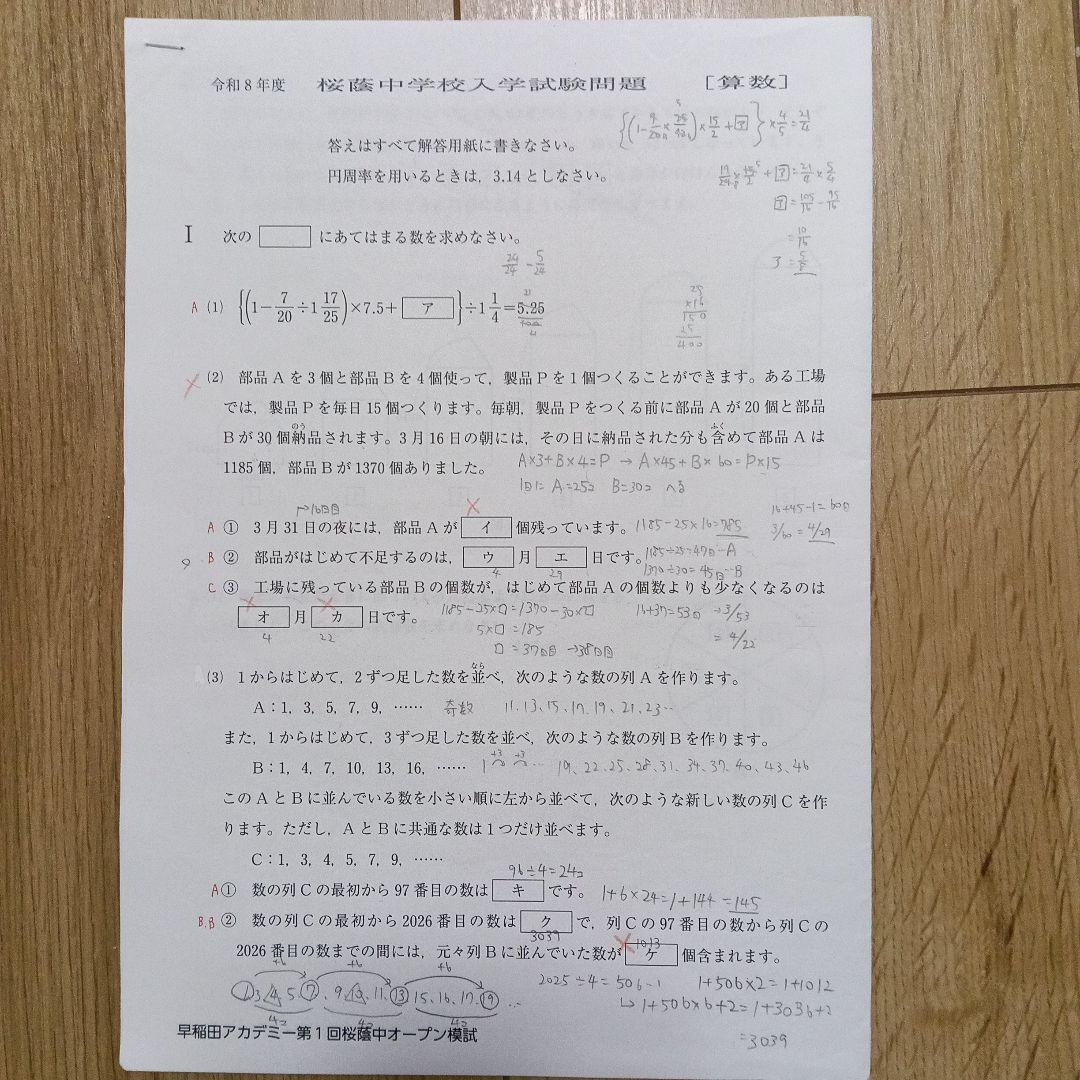 令和8年度 桜蔭中学校入学試験問題 [算数]
答えはすべて解答用紙に書きなさい。
円周率を用いるときは，3.14としなさい。
I 次の□にあてはまる数を求めなさい。
24/24 - 5/24
A (1) {(1-7/20÷1 17/25)×7.5+ ア }÷1 1/4=5.25
(2) 部品Aを3個と部品Bを4個使って，製品Pを1個つくることができます。ある工場
では，製品Pを毎日15個つくります。毎朝，製品Pをつくる前に部品Aが20個と部品
Bが30個納品されます。3月16日の朝には，その日に納品された分も含めて部品Aは
1185個，部品Bが1370個ありました。
A×3+B×4=P → A×45+B×60=P×15
1日に A=25コ B=30コ へる
→16日目
16+45-1=60日
A ① 3月31日の夜には，部品Aが イ 個残っています。 1185-25×16=785
3/60=4/29
B ② 部品がはじめて不足するのは， ウ 月 エ 日です。 1185÷25=47日…A
4 29 1370÷30=45日…B
C ③ 工場に残っている部品Bの個数が，はじめて部品Aの個数よりも少なくなるのは
オ 月 カ 日です。 1185-25×□=1370-30×□ 16+37=53日 →3/53
4 22 5×□=185 =4/22
□=37日目 →38日目
(3) 1からはじめて，2ずつ足した数を並べ，次のような数の列Aを作ります。
A：1，3，5，7，9，…… 奇数 11、13、15、17、19、21、23…
また，1からはじめて，3ずつ足した数を並べ，次のような数の列Bを作ります。
B：1，4，7，10，13，16，…… 1 +3 +3 … 19、22、25、28、31、34、37、40、43、46
このAとBに並んでいる数を小さい順に左から並べて，次のような新しい数の列Cを作
ります。ただし，AとBに共通な数は1つだけ並べます。
C：1，3，4，5，7，9，……
96÷4=24コ
A ① 数の列Cの最初から97番目の数は キ です。 1+6×24=1+144=145
B,B ② 数の列Cの最初から2026番目の数は ク で，列Cの97番目の数から列Cの
3039 1013
2026番目の数までの間には，元々列Bに並んでいた数が ケ 個含まれます。
+6 +6 +6
1、3、4、5、7、9、10、11、13、15、16、17、19…
2025÷4=506…1 1+506×2=1+1012
→1+506×6+2=1+3036+2
=3039
早稲田アカデミー第1回桜蔭中オープン模試